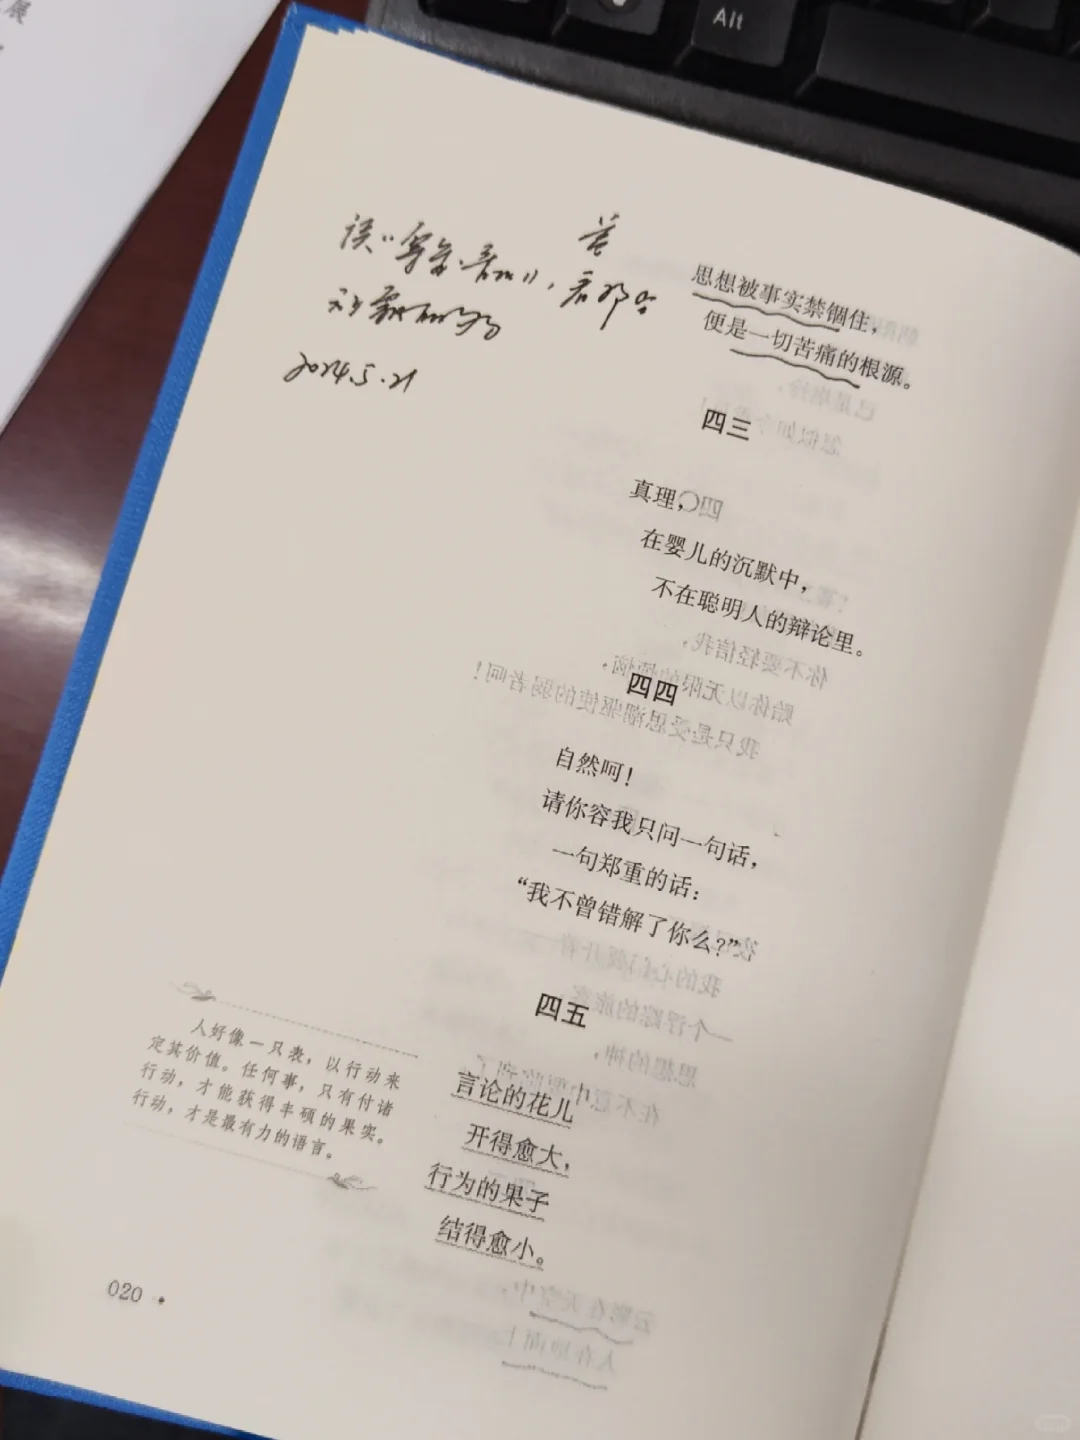 展
Alt
2024.5.21
思想被事实禁锢住,
便是一切苦痛的根源。
四三
真理,
在婴儿的沉默中,
不在聪明人的辩论里。
四四
自然呵!
请你容我只问一句话,
一句郑重的话:
“我不曾错解了你么?”
四五
言论的花儿
开得愈大,
行为的果子
结得愈小。
人好像一只表,以行动来
定其价值。任何事,只有付诸
行动,才能获得丰硕的果实。
行动,才是最有力的语言。
020